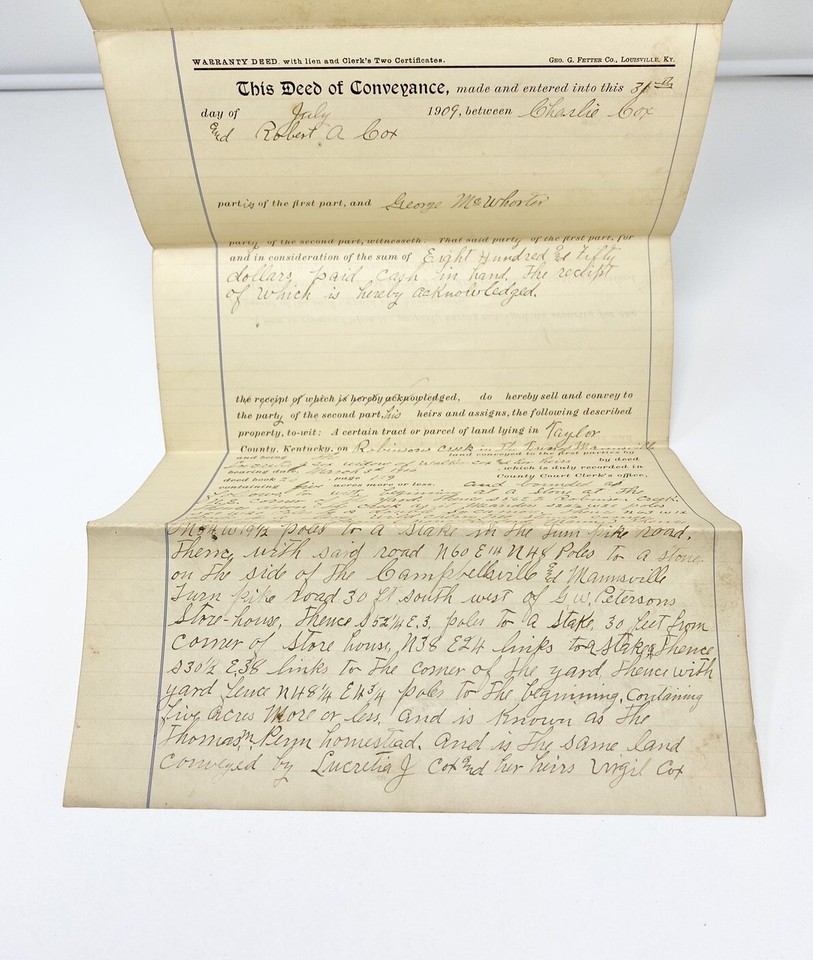 WARRANTY DEED, with lien and Clerk's Two Certificates. GEO. G. FETTER CO., LOUISVILLE, KY.
This Deed of Conveyance, made and entered into this 31st
day of July 1909, between Charlie Cox
and Robert A Cox
parties of the first part, and George McWhorter
party of the second part, witnesseth: That said party of the first part, for
and in consideration of the sum of Eight Hundred and fifty
dollars paid cash in hand. The receipt
of which is hereby acknowledged.
the receipt of which is hereby acknowledged, do hereby sell and convey to
the party of the second part, his heirs and assigns, the following described
property, to-wit: A certain tract or parcel of land lying in Taylor
County, Kentucky, on Robinson creek in the
and being and conveyed to the first parties by
widow of Cox and her heirs by deed
bearing date March which is duly recorded in
deed book page County Court Clerk's office,
containing five acres more or less. and bounded as
follows to wit beginning at a stone at the
W 19½ poles to a stake in the Turn pike Road.
Thence with said road N60 E14 N48 Poles to a stone
on the side of the Campbellsville and Mannsville
Turn pike road 30 ft south west of G.W. Petersons
Store-house, Thence S52¼ E.3. poles to a stake 30 feet from
corner of store house, N38 E24 links to a stake, Thence
S30½ E38 links to the corner of the yard, Thence with
yard fence N48¼ E4¾ poles to the beginning, Containing
five acres More or less. and is known as the
Thomas M. Penn homestad. and is the same land
conveyed by Lucretia J Cox and her heirs Virgil Cox